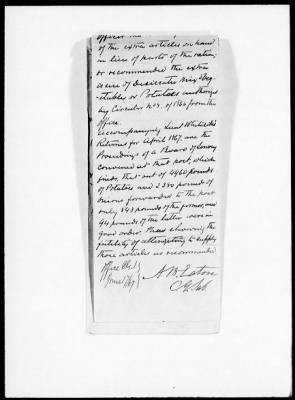 of the extra articles on hand
in lieu of parts of the ration,
or recommended the extra
issue of Desiccated Mixed Veg-
etables or Potatoes authorized
by Circular No 3, of 1866 from this
office.
Accompanying Lieut
Returns for April 1867, are the
Proceedings of a Board of Survey
convened at that post, which
finds, that out of 4960 pounds
of Potatoes and 2380 pounds of
Onions forwarded to the post
only 843 pounds of the former, and
94 pounds of the latter were in
good order. Thus showing the
futility of attempting to supply
those articles as recommended.
A B Eaton